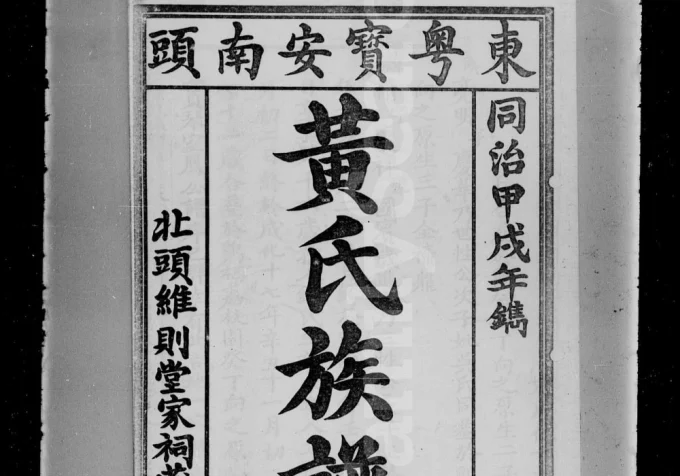 東粵寶安南頭
同治甲戌年鐫
黃氏族譜
北頭維則堂家祠